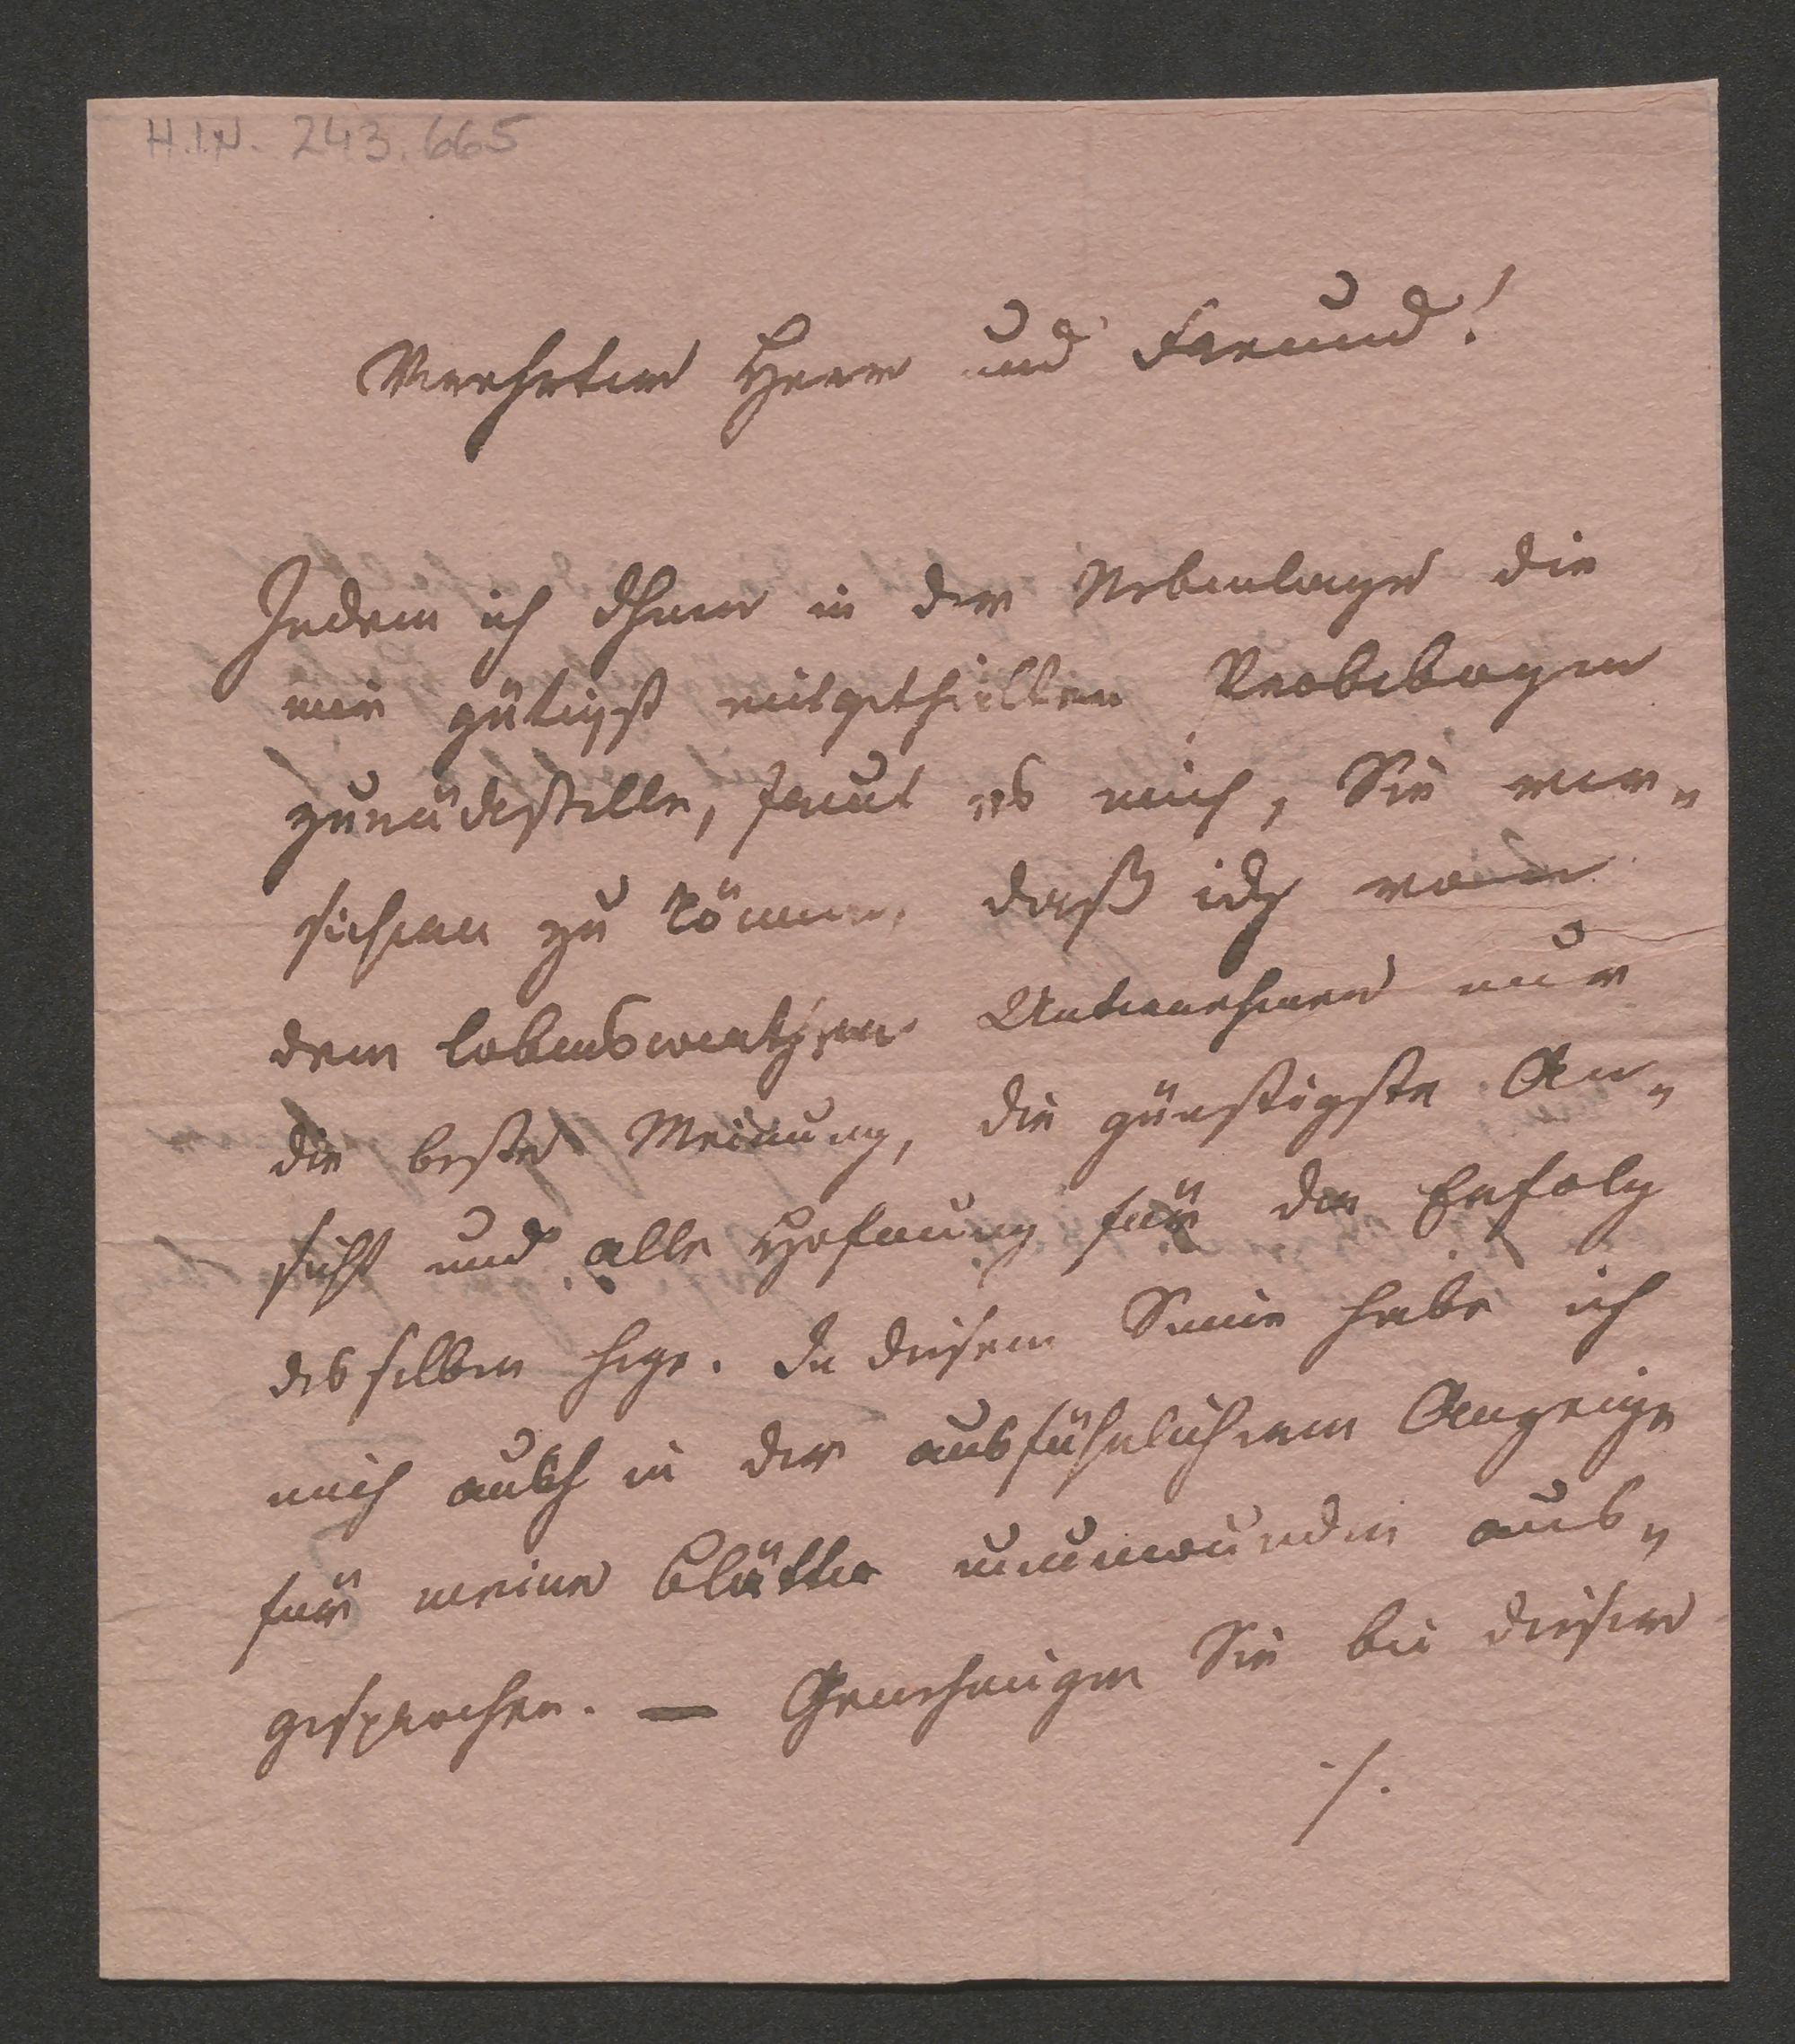 H.I.N. 243.665
Verehrter Herr und Freund!
Indem ich Ihnen in der Nebenlage die
mir gütigst mitgetheilten Probebogen
zurückstelle, freut es mich, Sie ver„
sichern zu können, daß ich von
dem lobenswerthen Unternehmen nur
die beste Meinung, die günstigste An„
sicht und alle Hofnung für den Erfolg
desselben hege. In diesem Sinne habe ich
mich auch in der ausführlichern Anzeige
für meine Blätter unumwunden aus„
gesprochen. — Genehmigen Sie bei dieser
./.